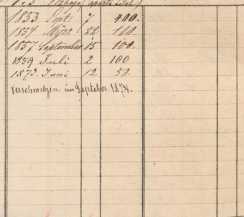 1853 Juli 7 400.
1857 März 22 100.
1857 September 15 100.
1859 Juli 2 100
1873. Juni 12 50.
im September 1874.